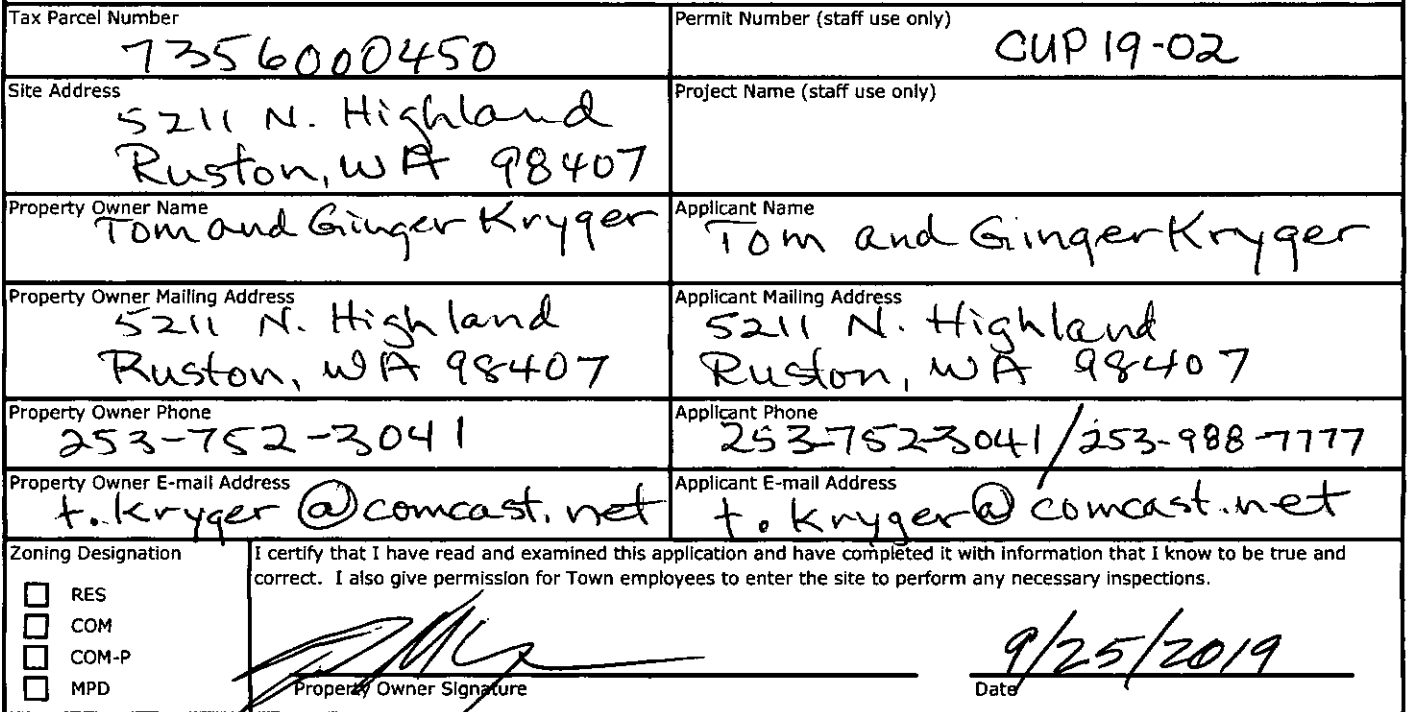 Tax Parcel Number
7356000450
Permit Number (staff use only)
CUP 19-02
Site Address
5211 N. Highland
Ruston, WA 98407
Project Name (staff use only)
Property Owner Name
Tom and Ginger Kryger
Applicant Name
Tom and Ginger Kryger
Property Owner Mailing Address
5211 N. Highland
Ruston, WA 98407
Applicant Mailing Address
5211 N. Highland
Ruston, WA 98407
Property Owner Phone
253-752-3041
Applicant Phone
253-752-3041/253-988-7777
Property Owner E-mail Address
t.kryger@comcast.net
Applicant E-mail Address
t.kryger@comcast.net
Zoning Designation
RES
COM
COM-P
MPD
I certify that I have read and examined this application and have completed it with information that I know to be true and
correct. I also give permission for Town employees to enter the site to perform any necessary inspections.
Property Owner Signature
9/25/2019
Date